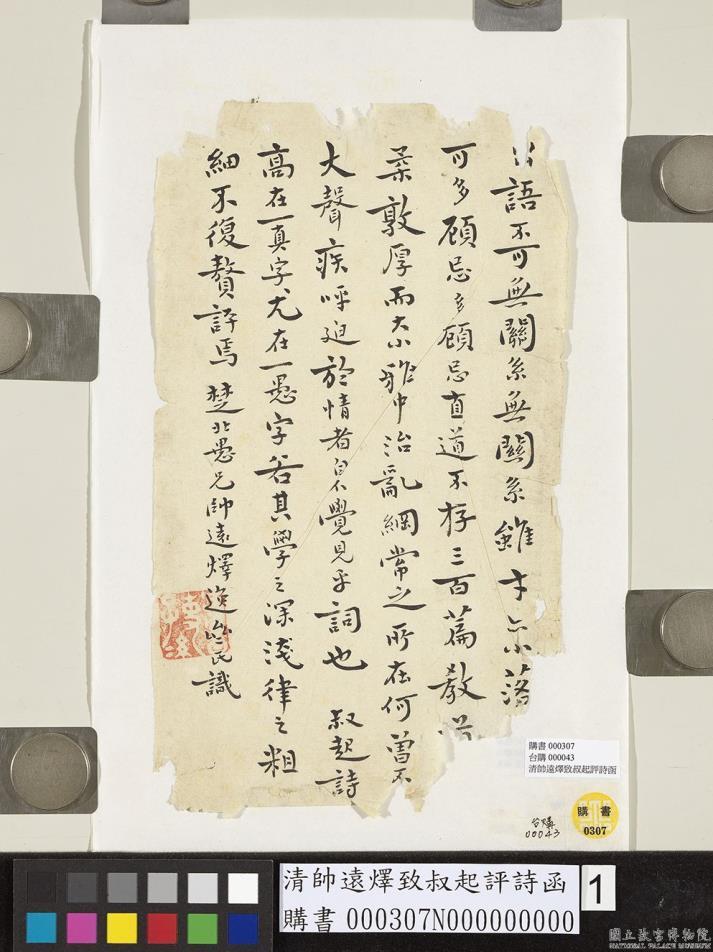 語不可無關系無關系雖才亦落
可多顧忌多顧忌直道不存三百篇教
柔敦厚而大小雅中治亂綱常之所在何曾不
大聲疾呼迫於情者自不覺見乎詞也 叔起詩
高在一真字尤在一愚字若其學之深淺律之粗
細不復贅評焉 楚北愚兄帥遠燡逸民識
購書 000307
台購 000043
清帥遠燡致叔起評詩函
台購
00043
購書
0307
清帥遠燡致叔起評詩函
購書 000307N000000000
1
國立故宮博物院
NATIONAL PALACE MUSEUM